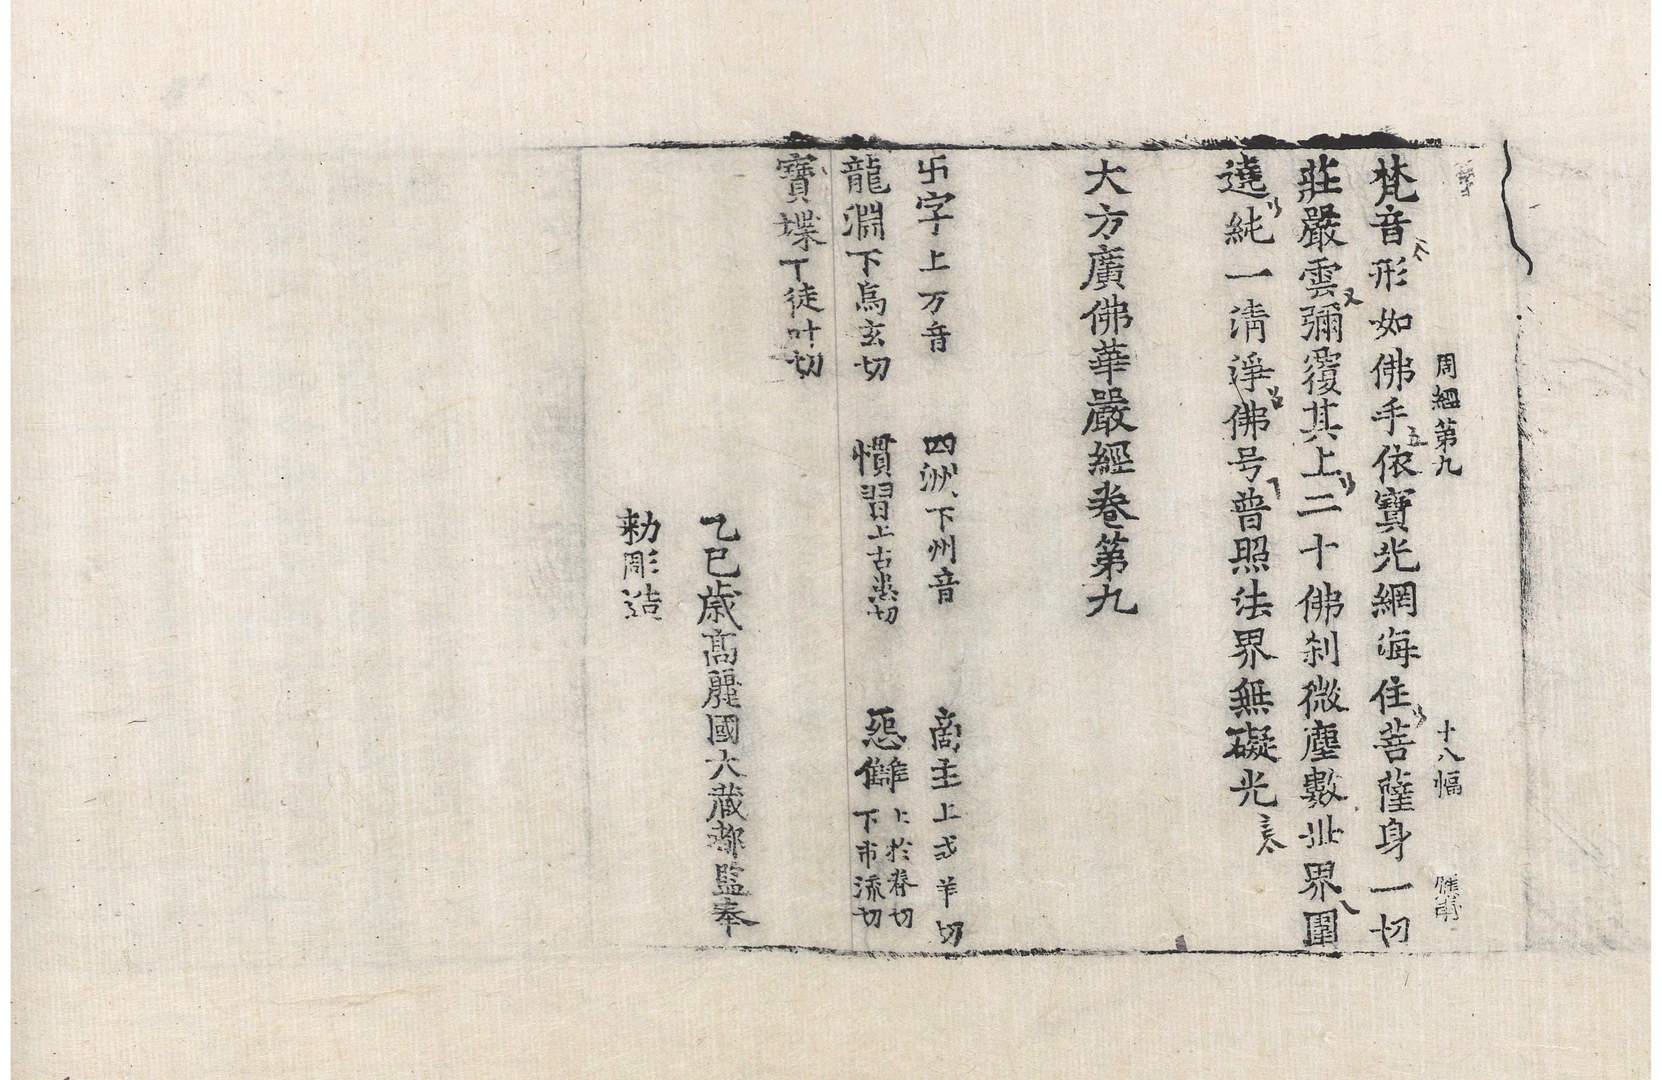 周經第九 十八幅
梵音形如佛手依寶光網海住菩薩身一切
莊嚴雲彌覆其上二十佛刹微塵數世界圍
遶純一清淨佛号普照法界無礙光
大方廣佛華嚴經卷第九
卐字上万音 四洲下州音 商主上式羊切
龍淵下烏玄切 慣習上古患切 怨讎上於眷切下市流切
寶堞丁徒叶切
乙巳歲高麗國大藏都監奉
勅彫造